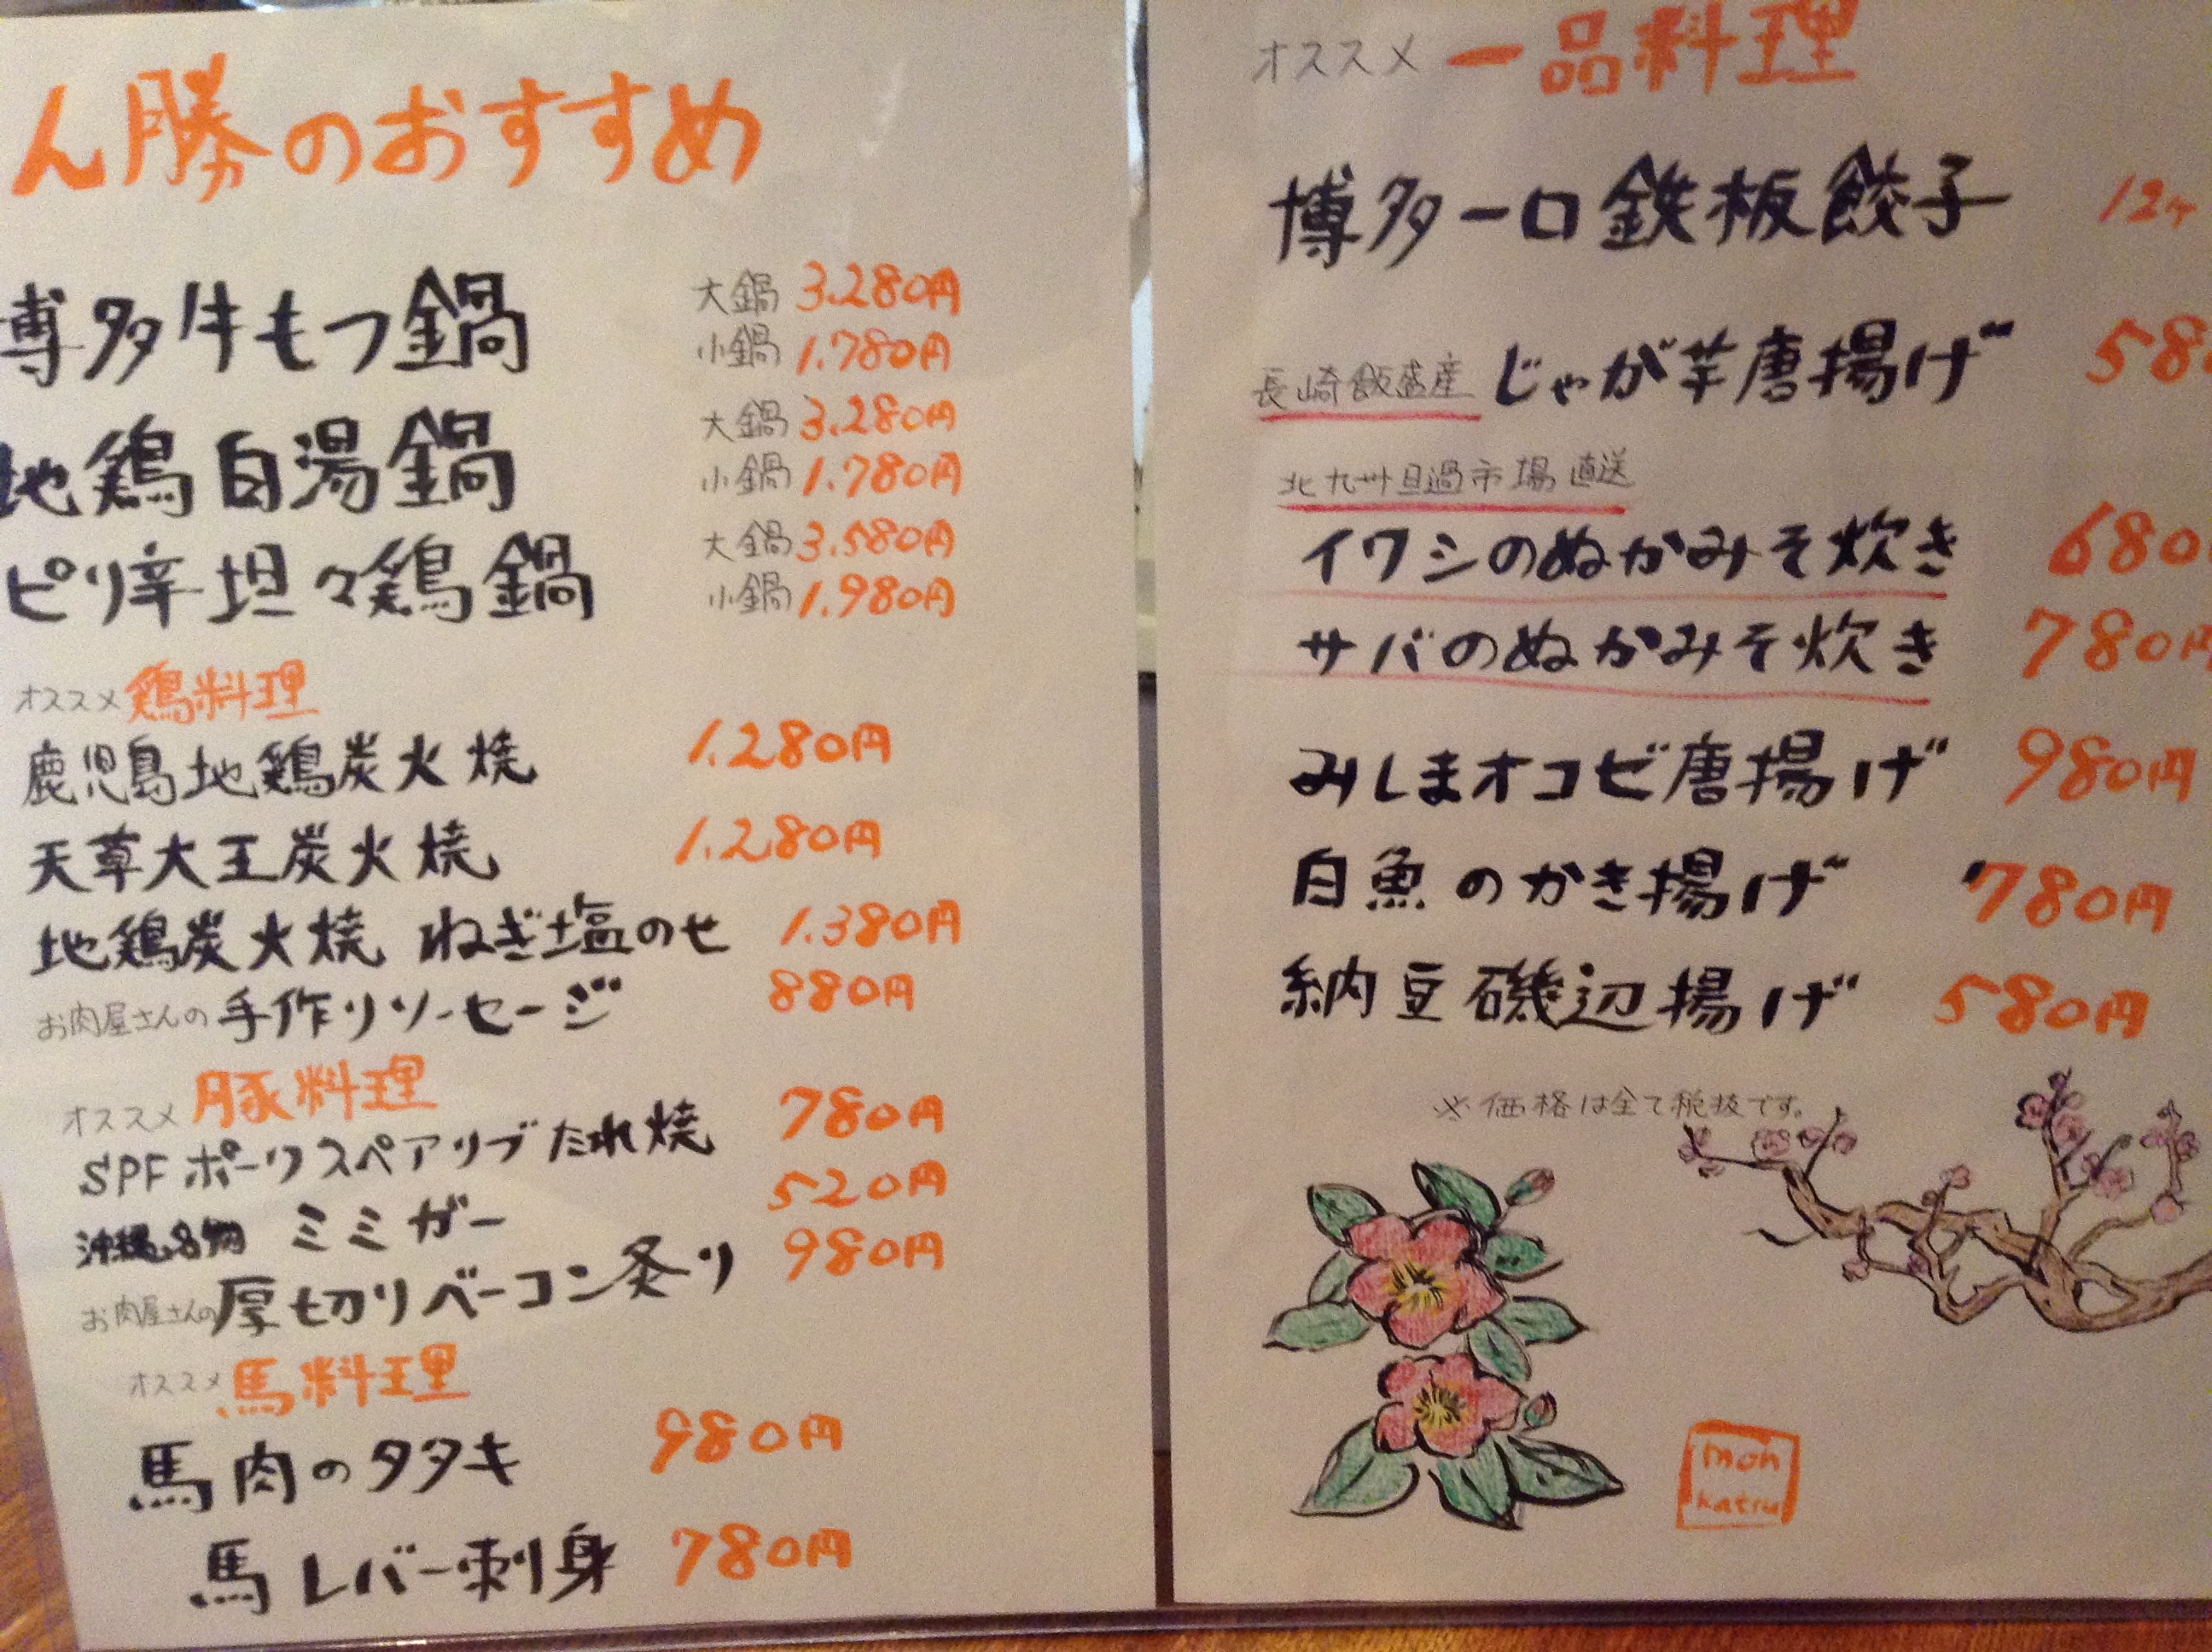 ん勝のおすすめ
博多牛もつ鍋 大鍋 3.280円
小鍋 1.780円
地鶏白湯鍋 大鍋 3.280円
小鍋 1.780円
ピリ辛坦々鶏鍋 大鍋 3.580円
小鍋 1.980円
オススメ 鶏料理
鹿児島地鶏炭火焼 1.280円
天草大王炭火焼 1.280円
地鶏炭火焼 ねぎ塩のせ 1.380円
お肉屋さんの 手作りソーセージ 880円
オススメ 豚料理
SPFポークスペアリブたれ焼 780円
沖縄名物 ミミガー 520円
お肉屋さんの 厚切りベーコン炙り 980円
オススメ 馬料理
馬肉のタタキ 980円
馬レバー刺身 780円
オススメ 一品料理
博多一口鉄板餃子 12ヶ
長崎飯盛産 じゃが芋唐揚げ 58
北九州旦過市場直送
イワシのぬかみそ炊き 680
サバのぬかみそ炊き 780円
みしまオコゼ唐揚げ 980円
白魚のかき揚げ 780円
納豆磯辺揚げ 580円
※価格は全て税抜です。
moh
katsu